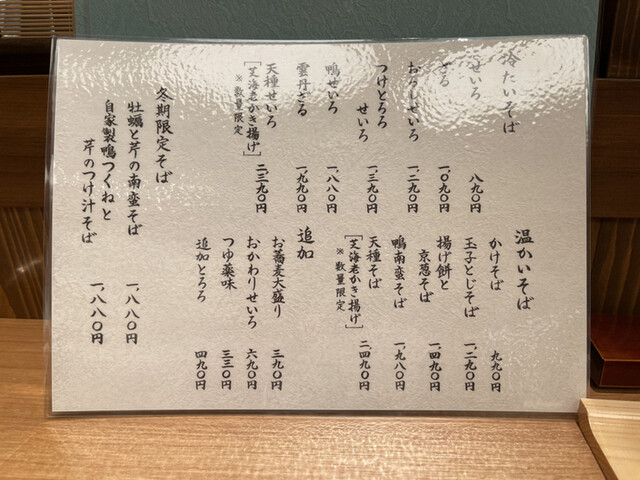 冷たいそば
せいろ 八九〇円
ざる 一、〇九〇円
おろしせいろ 一、二九〇円
つけとろろ
せいろ 一、三九〇円
鴨せいろ 一、八八〇円
雲丹ざる 一、九九〇円
天種せいろ 二、三九〇円
[芝海老かき揚げ]
※数量限定
温かいそば
かけそば 九九〇円
玉子とじそば 一、二九〇円
揚げ餅と
京葱そば 一、四九〇円
鴨南蛮そば 一、九八〇円
天種そば 二、四九〇円
[芝海老かき揚げ]
※数量限定
追加
お蕎麦大盛り 三九〇円
おかわりせいろ 六九〇円
つゆ薬味 三三〇円
追加とろろ 四九〇円
冬期限定そば
牡蠣と芹の南蛮そば 一、八八〇円
自家製鴨つくねと
芹のつけ汁そば 一、八八〇円